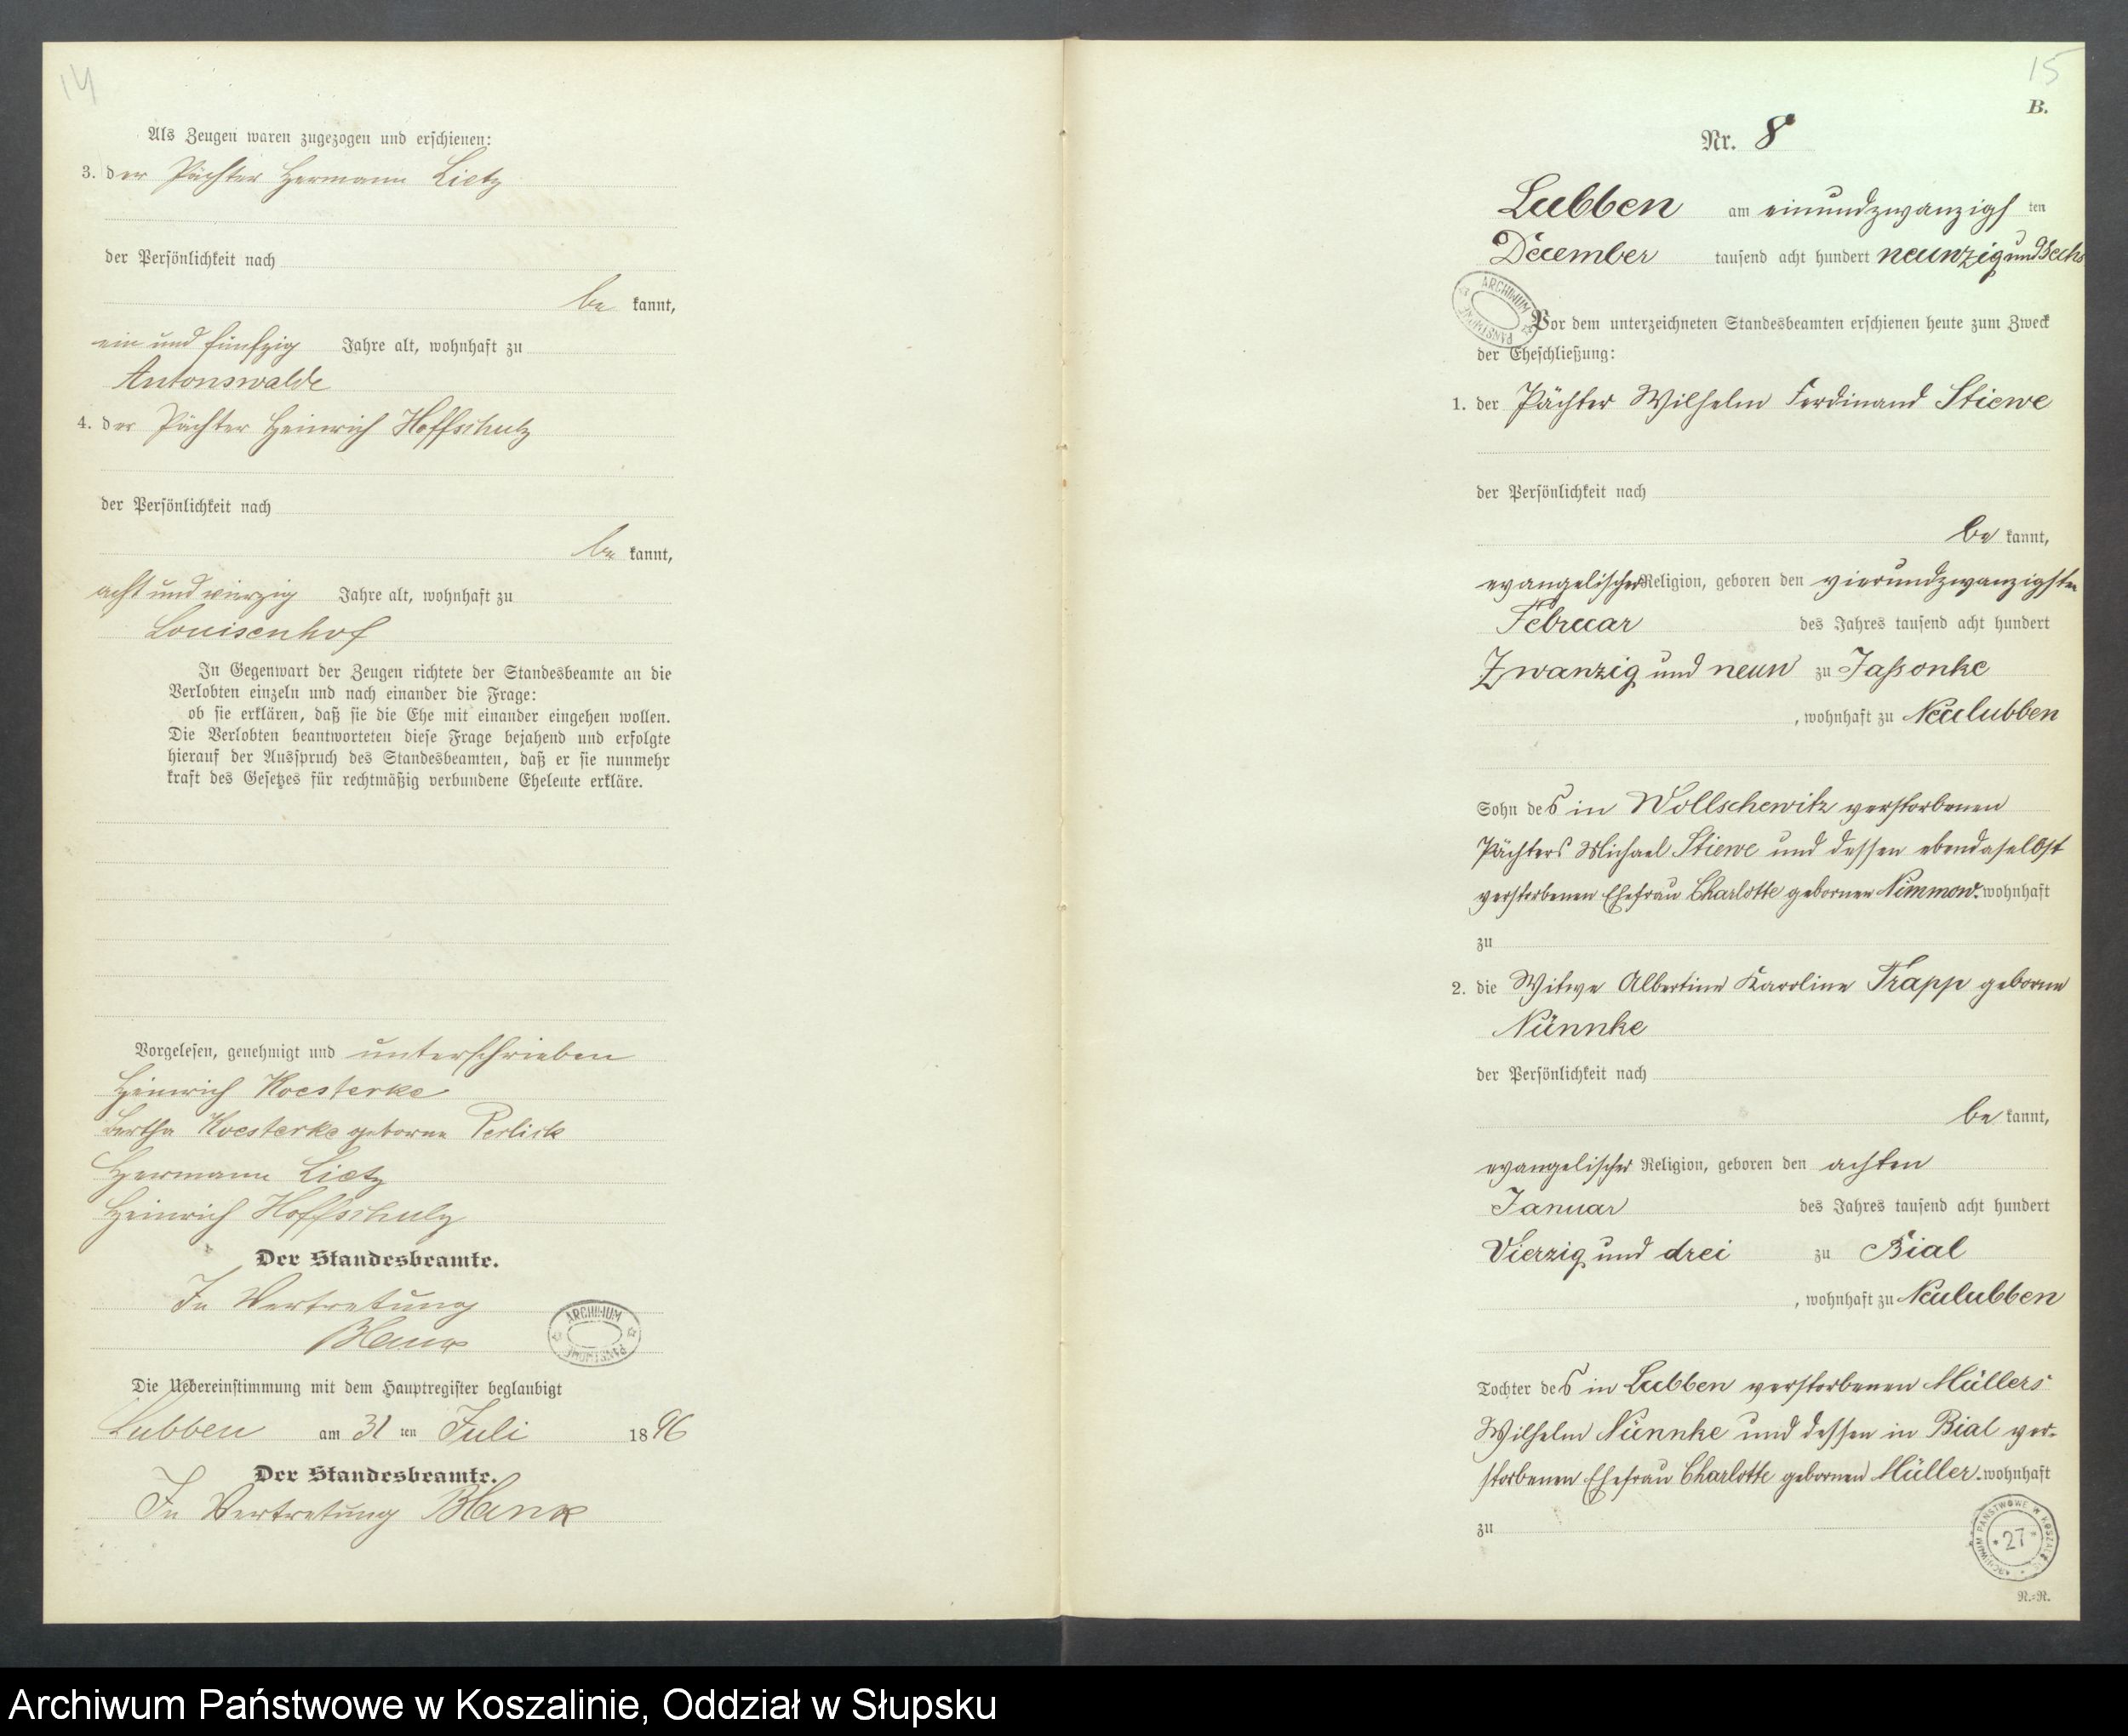 14
Als Zeugen waren zugezogen und erschienen:
3. der Pächter Hermann Lietz
der Persönlichkeit nach
be kannt,
ein und fünfzig Jahre alt, wohnhaft zu
Antonswalde
4. der Pächter Heinrich Hoffschulz
der Persönlichkeit nach
be kannt,
acht und vierzig Jahre alt, wohnhaft zu
Louisenhof
In Gegenwart der Zeugen richtete der Standesbeamte an die
Verlobten einzeln und nach einander die Frage:
ob sie erklären, daß sie die Ehe mit einander eingehen wollen.
Die Verlobten beantworteten diese Frage bejahend und erfolgte
hierauf der Ausspruch des Standesbeamten, daß er sie nunmehr
kraft des Gesetzes für rechtmäßig verbundene Eheleute erkläre.
Vorgelesen, genehmigt und unterschrieben
Heinrich Koesterke
Bertha Koesterke geborne Perlick
Hermann Lietz
Heinrich Hoffschulz
Der Standesbeamte.
In Vertretung
Blank
ARCHIWUM PAŃSTWOWE
Die Uebereinstimmung mit dem Hauptregister beglaubigt
Lubben am 31 ten Juli 1896
Der Standesbeamte.
In Vertretung Blank
15
B.
Nr. 8
Lubben am einundzwanzigs ten
December tausend acht hundert neunzig und sechs
ARCHIWUM PAŃSTWOWE
Vor dem unterzeichneten Standesbeamten erschienen heute zum Zweck
der Eheschließung:
1. der Pächter Wilhelm Ferdinand Stiewe
der Persönlichkeit nach
be kannt,
evangelischer Religion, geboren den vierundzwanzigsten
Februar des Jahres tausend acht hundert
Zwanzig und neun zu Jaßonke
, wohnhaft zu Neulubben
Sohn des in Wollschewitz verstorbenen
Pächters Michael Stiewe und dessen ebendaselbst
verstorbenen Ehefrau Charlotte gebornen Nimmow. wohnhaft
zu
2. die Witwe Albertine Karoline Trapp geborne
Nünnke
der Persönlichkeit nach
be kannt,
evangelischer Religion, geboren den achten
Januar des Jahres tausend acht hundert
Vierzig und drei zu Bial
, wohnhaft zu Neulubben
Tochter des in Lubben verstorbenen Müllers
Wilhelm Nünnke und dessen in Bial ver-
storbenen Ehefrau Charlotte gebornen Müller. wohnhaft
zu
ARCHIWUM PAŃSTWOWE W KOSZALINIE * 27 *
N.=R.
Archiwum Państwowe w Koszalinie, Oddział w Słupsku